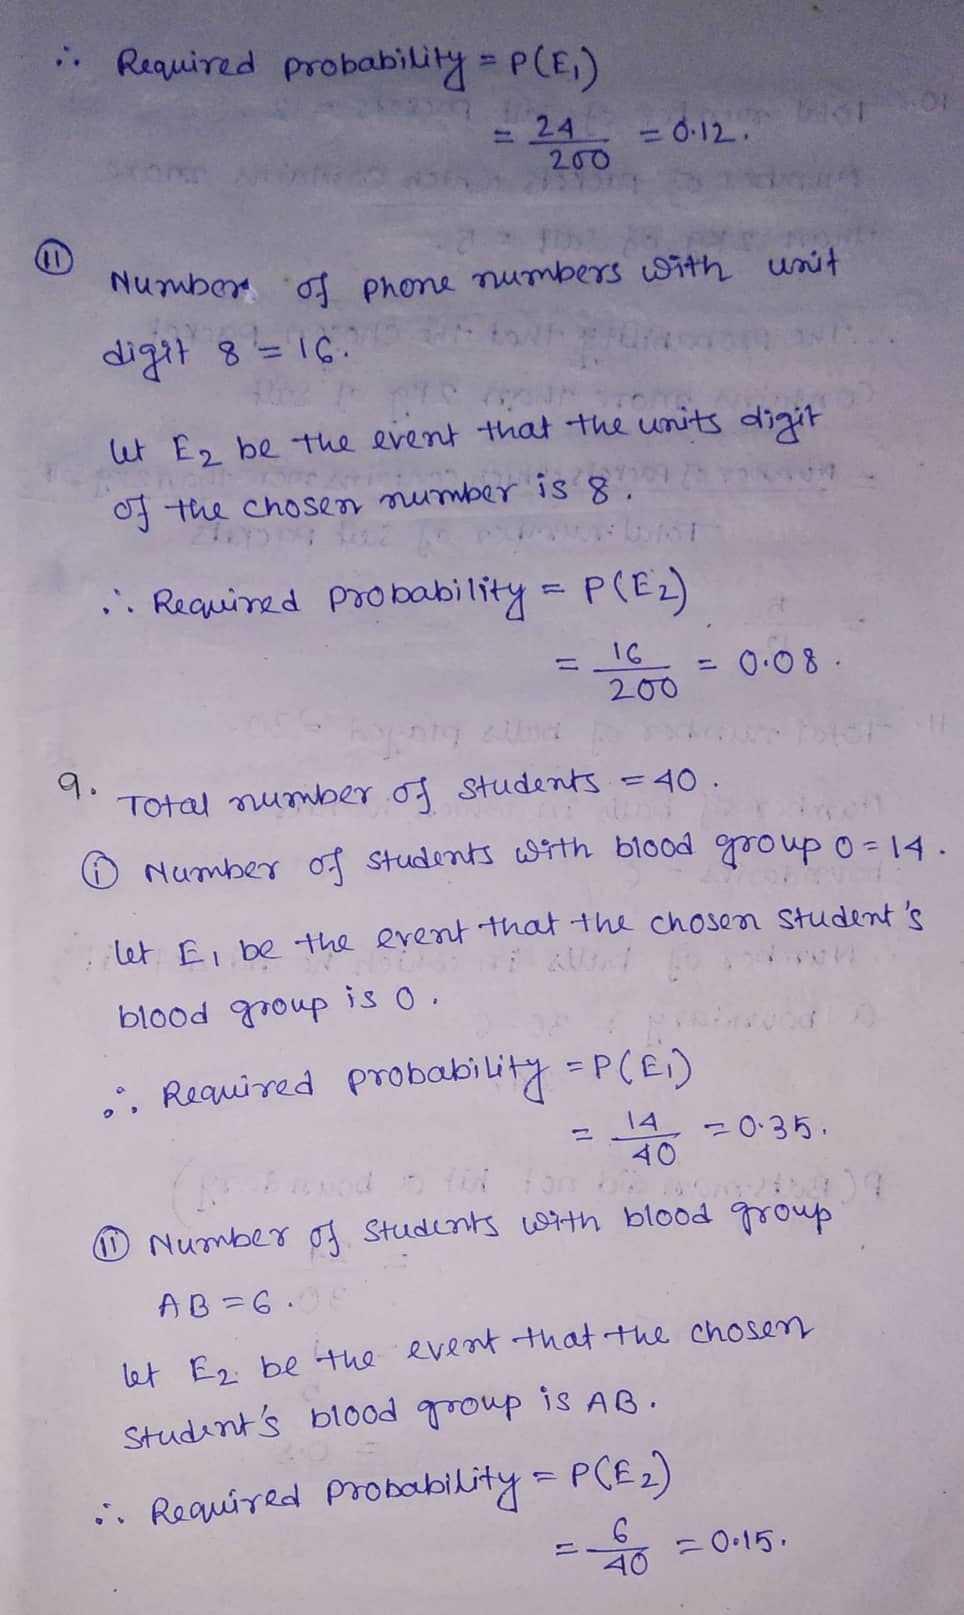 ∴ Required probability = P(E₁)
= 24/200 = 0.12.
(ii) Number of phone numbers with unit
digit 8 = 16.
let E₂ be the event that the units digit
of the chosen number is 8.
∴ Required probability = P(E₂)
= 16/200 = 0.08.
9. Total number of students = 40.
(i) Number of students with blood group O = 14.
let E₁ be the event that the chosen student's
blood group is O.
∴ Required probability = P(E₁)
= 14/40 = 0.35.
(ii) Number of students with blood group
AB = 6.
let E₂ be the event that the chosen
student's blood group is AB.
∴ Required probability = P(E₂)
= 6/40 = 0.15.